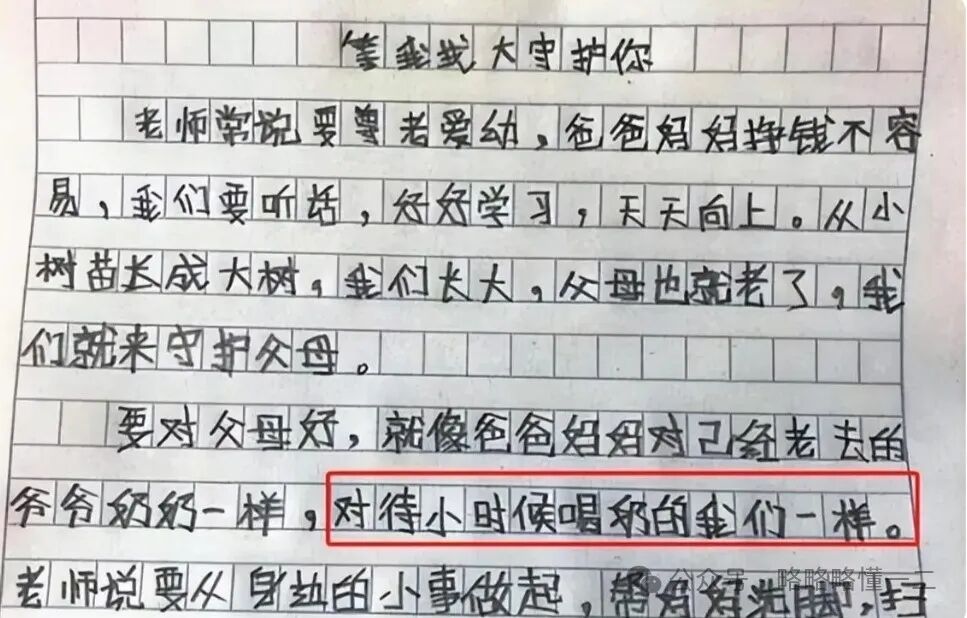 等我找大守护你
老师常说要尊老爱幼，爸爸妈妈挣钱不容
易，我们要听话，好好学习，天天向上。从小
树苗长成大树，我们长大，父母也就老了，我
们就来守护父母。
要对父母好，就像爸爸妈妈对己经老去的
爷爷奶奶一样，对待小时候喝奶的我们一样。
老师说要从身边的小事做起，帮妈妈洗脚，扫
公众号 略略略懂一二